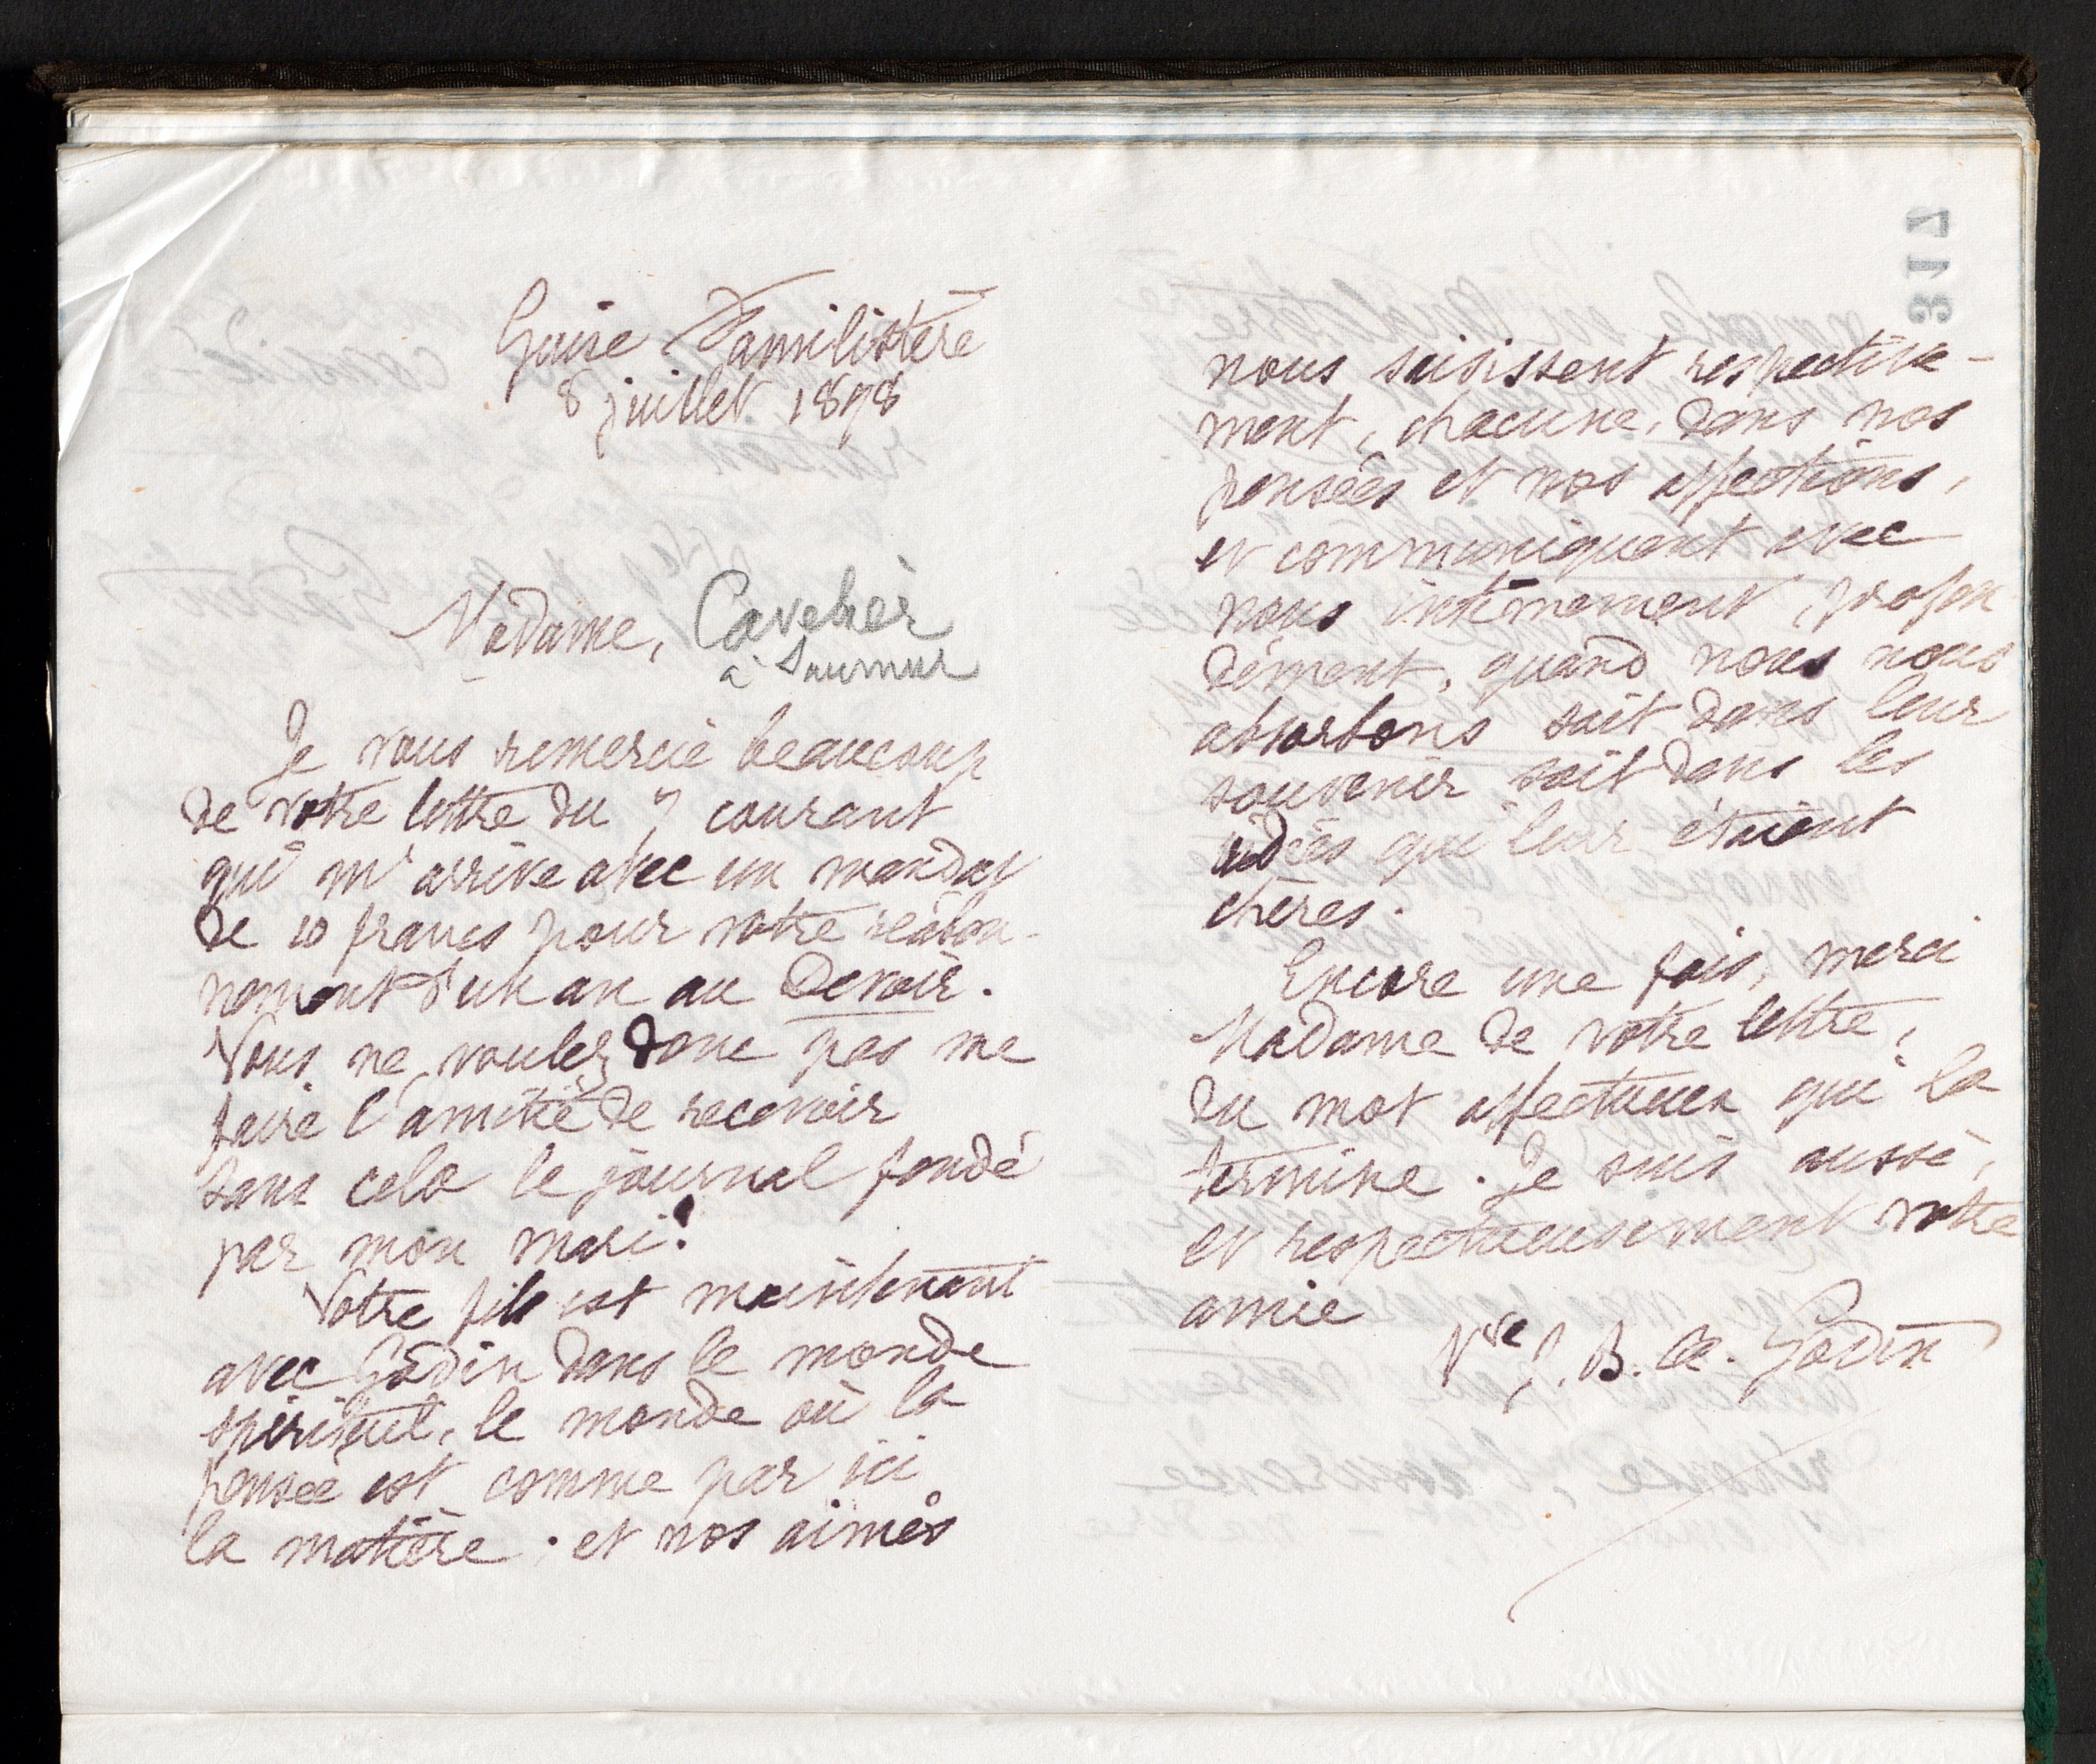 Guise Familistère
8 juillet 1898
Madame, Cavelier
à Saumur
Je vous remercie beaucoup
de votre lettre du 7 courant
qui m'arrive avec un mandat
de 10 francs pour votre réabon-
nement d'un an au Devoir.
Vous ne voulez donc pas me
faire l'amitié de recevoir
sans cela le journal fondé
par mon mari!
Votre fils est maintenant
avec Godin dans le monde
spirituel, le monde où la
pensée est comme par ici
la matière. et nos aimés
317
nous saisissent respective-
ment, chacune, dans nos
pensées et nos affections,
et communiquent avec
nous intimement, profon-
dément, quand nous nous
absorbons soit dans leur
souvenir soit dans les
idées qui leur étaient
chères.
Encore une fois, merci
Madame de votre lettre,
du mot affectueux qui la
termine. Je suis aussi,
et respectueusement votre
amie
Vve J. B. A. Godin